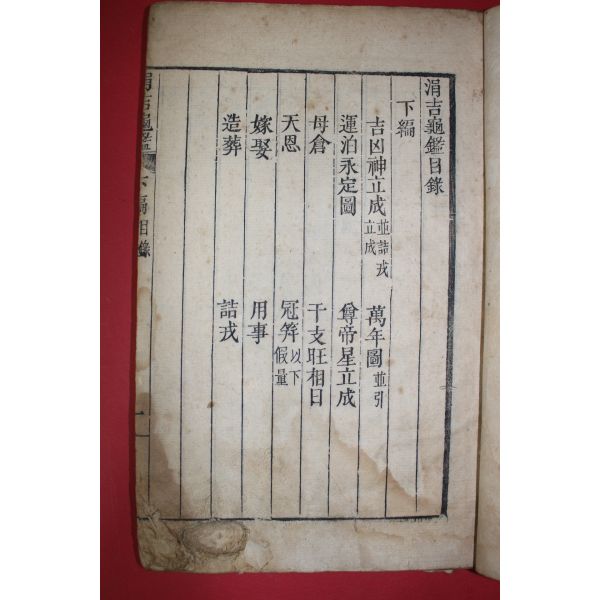 涓吉龜鑑目錄
下編
吉凶神立成 並詰戎立成 萬年圖 並引
運泊永定圖 尊帝星立成
母倉 干支旺相日
天恩 冠笄 以下假量
嫁娶 用事
造葬 詰戎
涓吉龜鑑 下編目錄 一